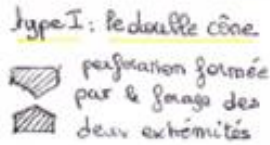 type I : le double cône
perforation formée
par le forage des
deux extrémités